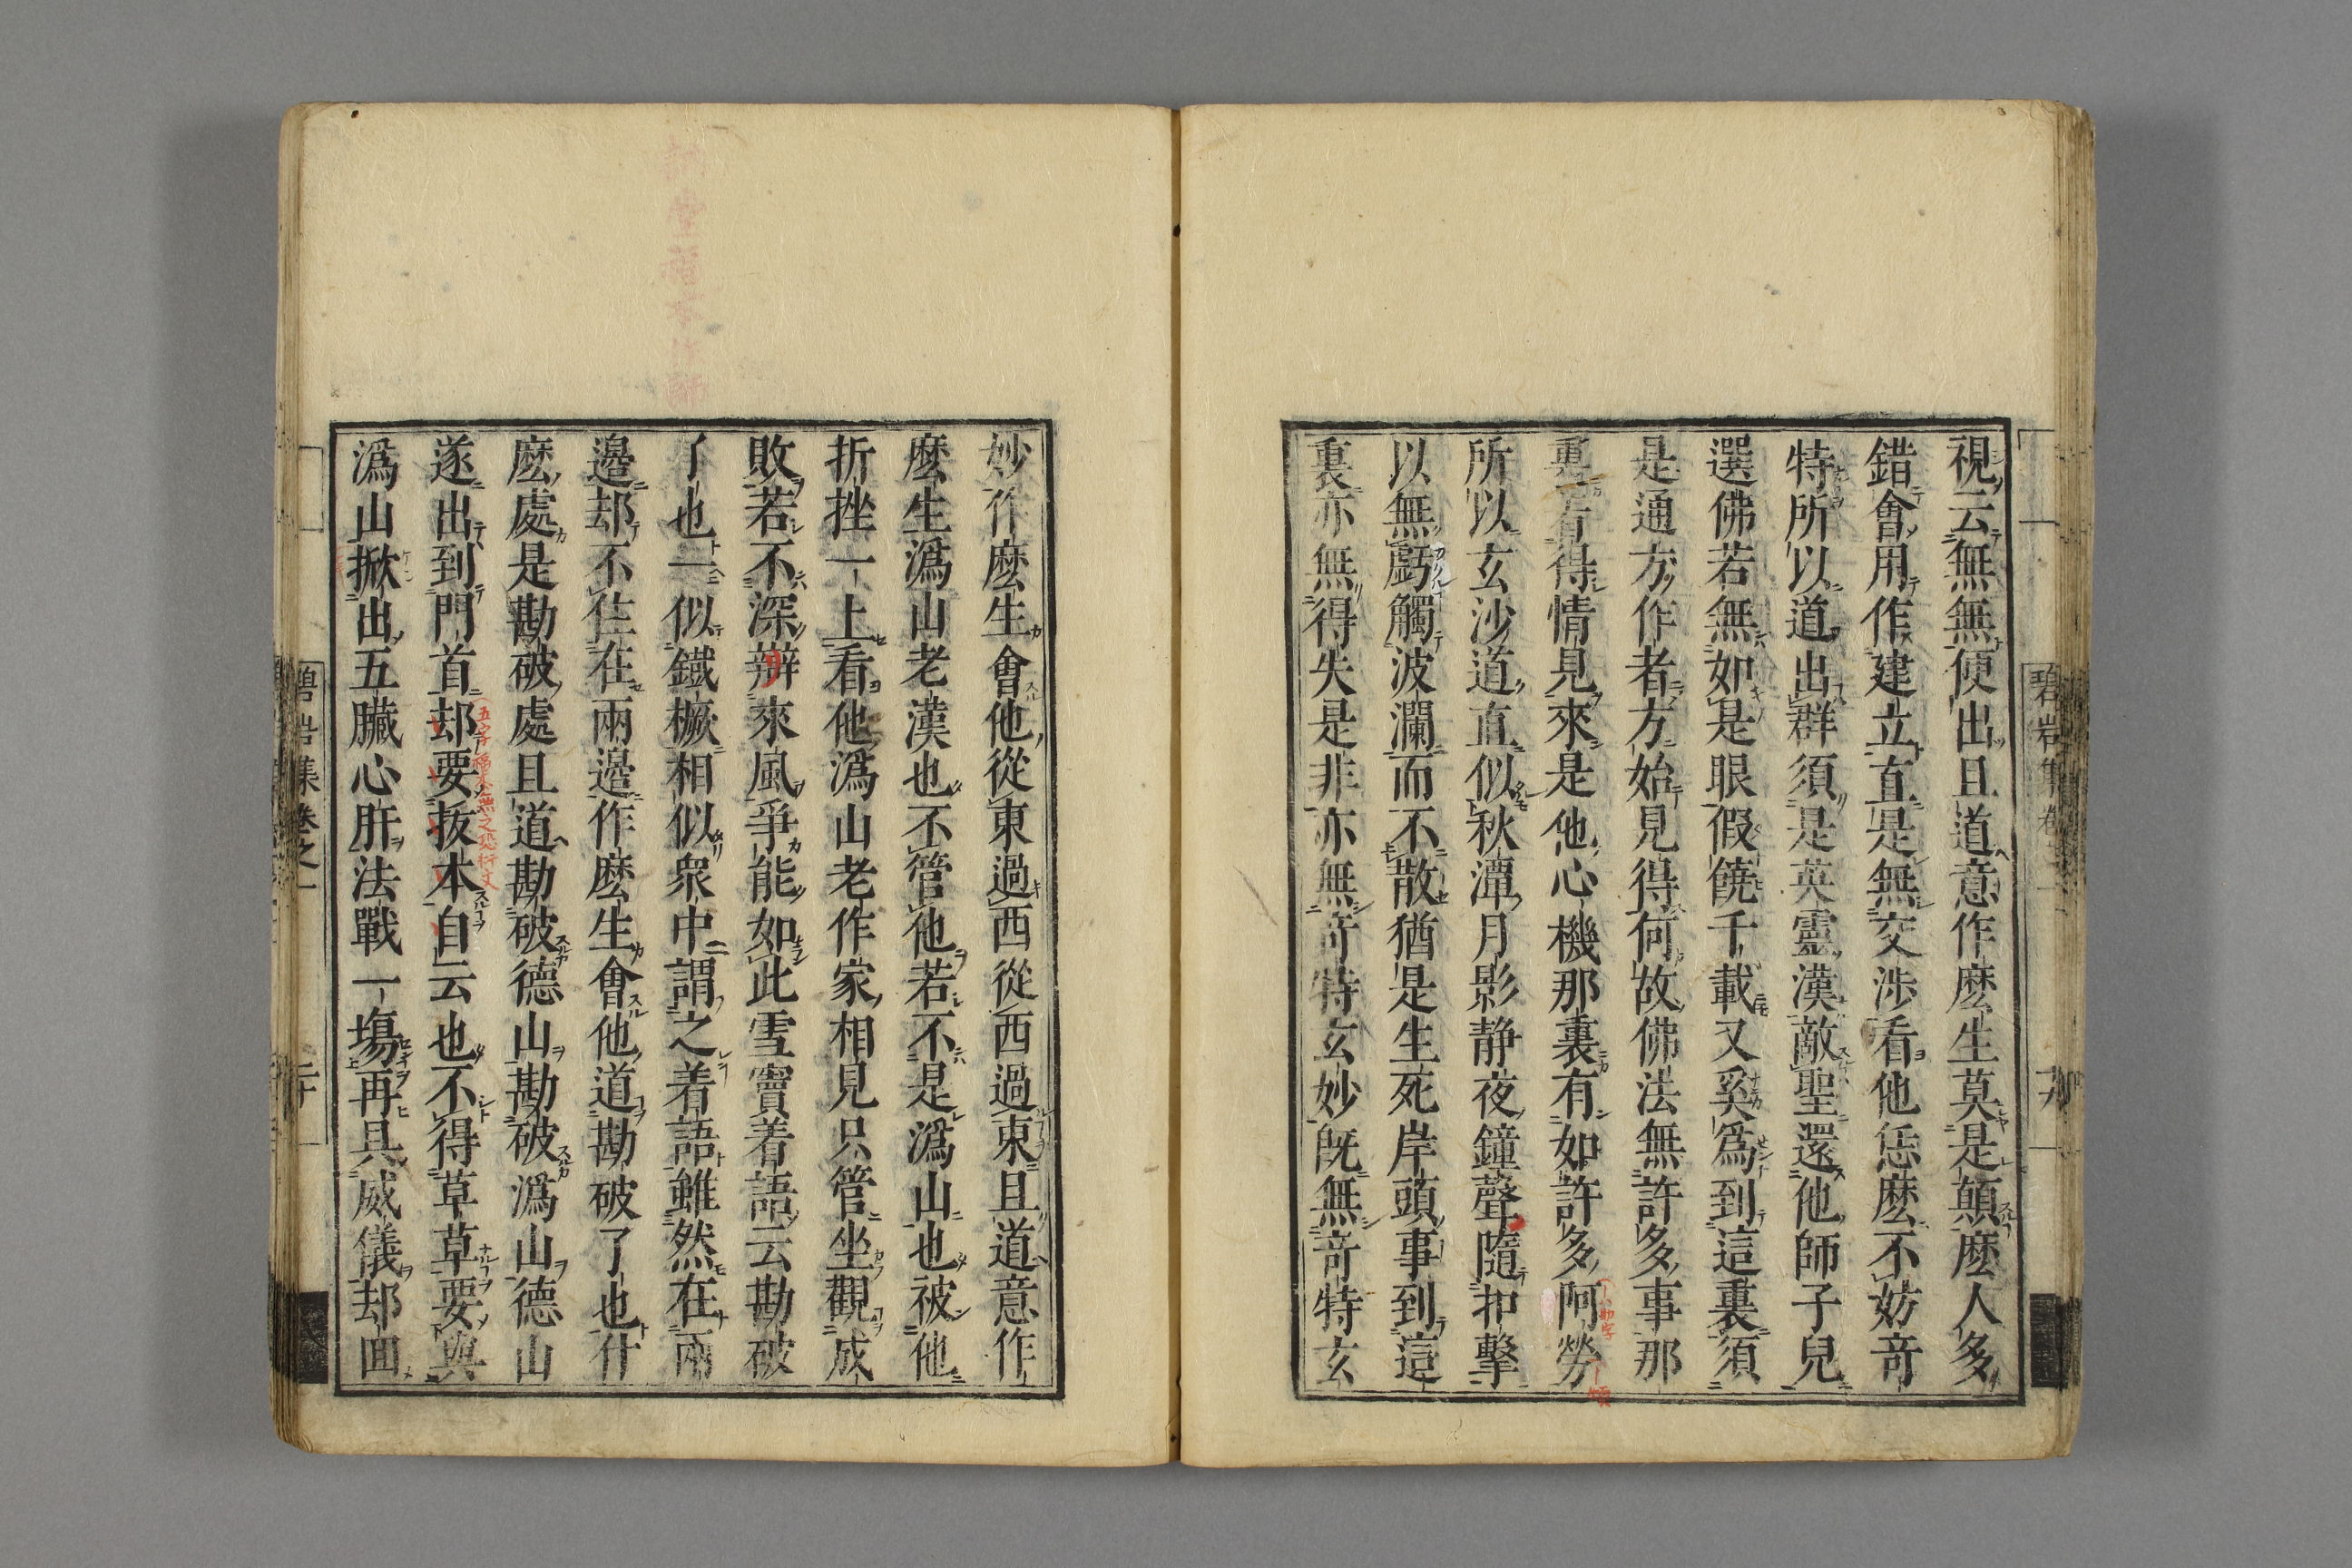 視云無無便出且道意作麽生莫是顛麽人多
錯會用作建立直是無交渉看他恁麽不妨竒
特所以道出群須是英靈漢敵聖還他師子兒
選佛若無如是眼假饒千載又奚爲到這裏須
是通方作者方始見得何故佛法無許多事那
裏着得情見來是他心機那裏有如許多阿勞
所以玄沙道直似秋潭月影静夜鐘聲隨扣擊
以無虧觸波瀾而不散猶是生死岸頭事到這
裏亦無得失是非亦無竒特玄妙旣無竒特玄
碧岩集卷之一
十九
妙作麽生會他從東過西從西過東且道意作
麽生潙山老漢也不管他若不是潙山也被他
折挫一上看他潙山老作家相見只管坐觀成
敗若不深辯來風爭能如此雪竇着語云勘破
了也一似鐵橛相似衆中謂之着語雖然在兩
邊却不住在兩邊作麽生會他道勘破了也什
麽處是勘破處且道勘破德山勘破潙山德山
遂出到門首却要拔本自云也不得草草要與
潙山掀出五臟心肝法戰一塲再具威儀却回
碧岩集卷之一
二十